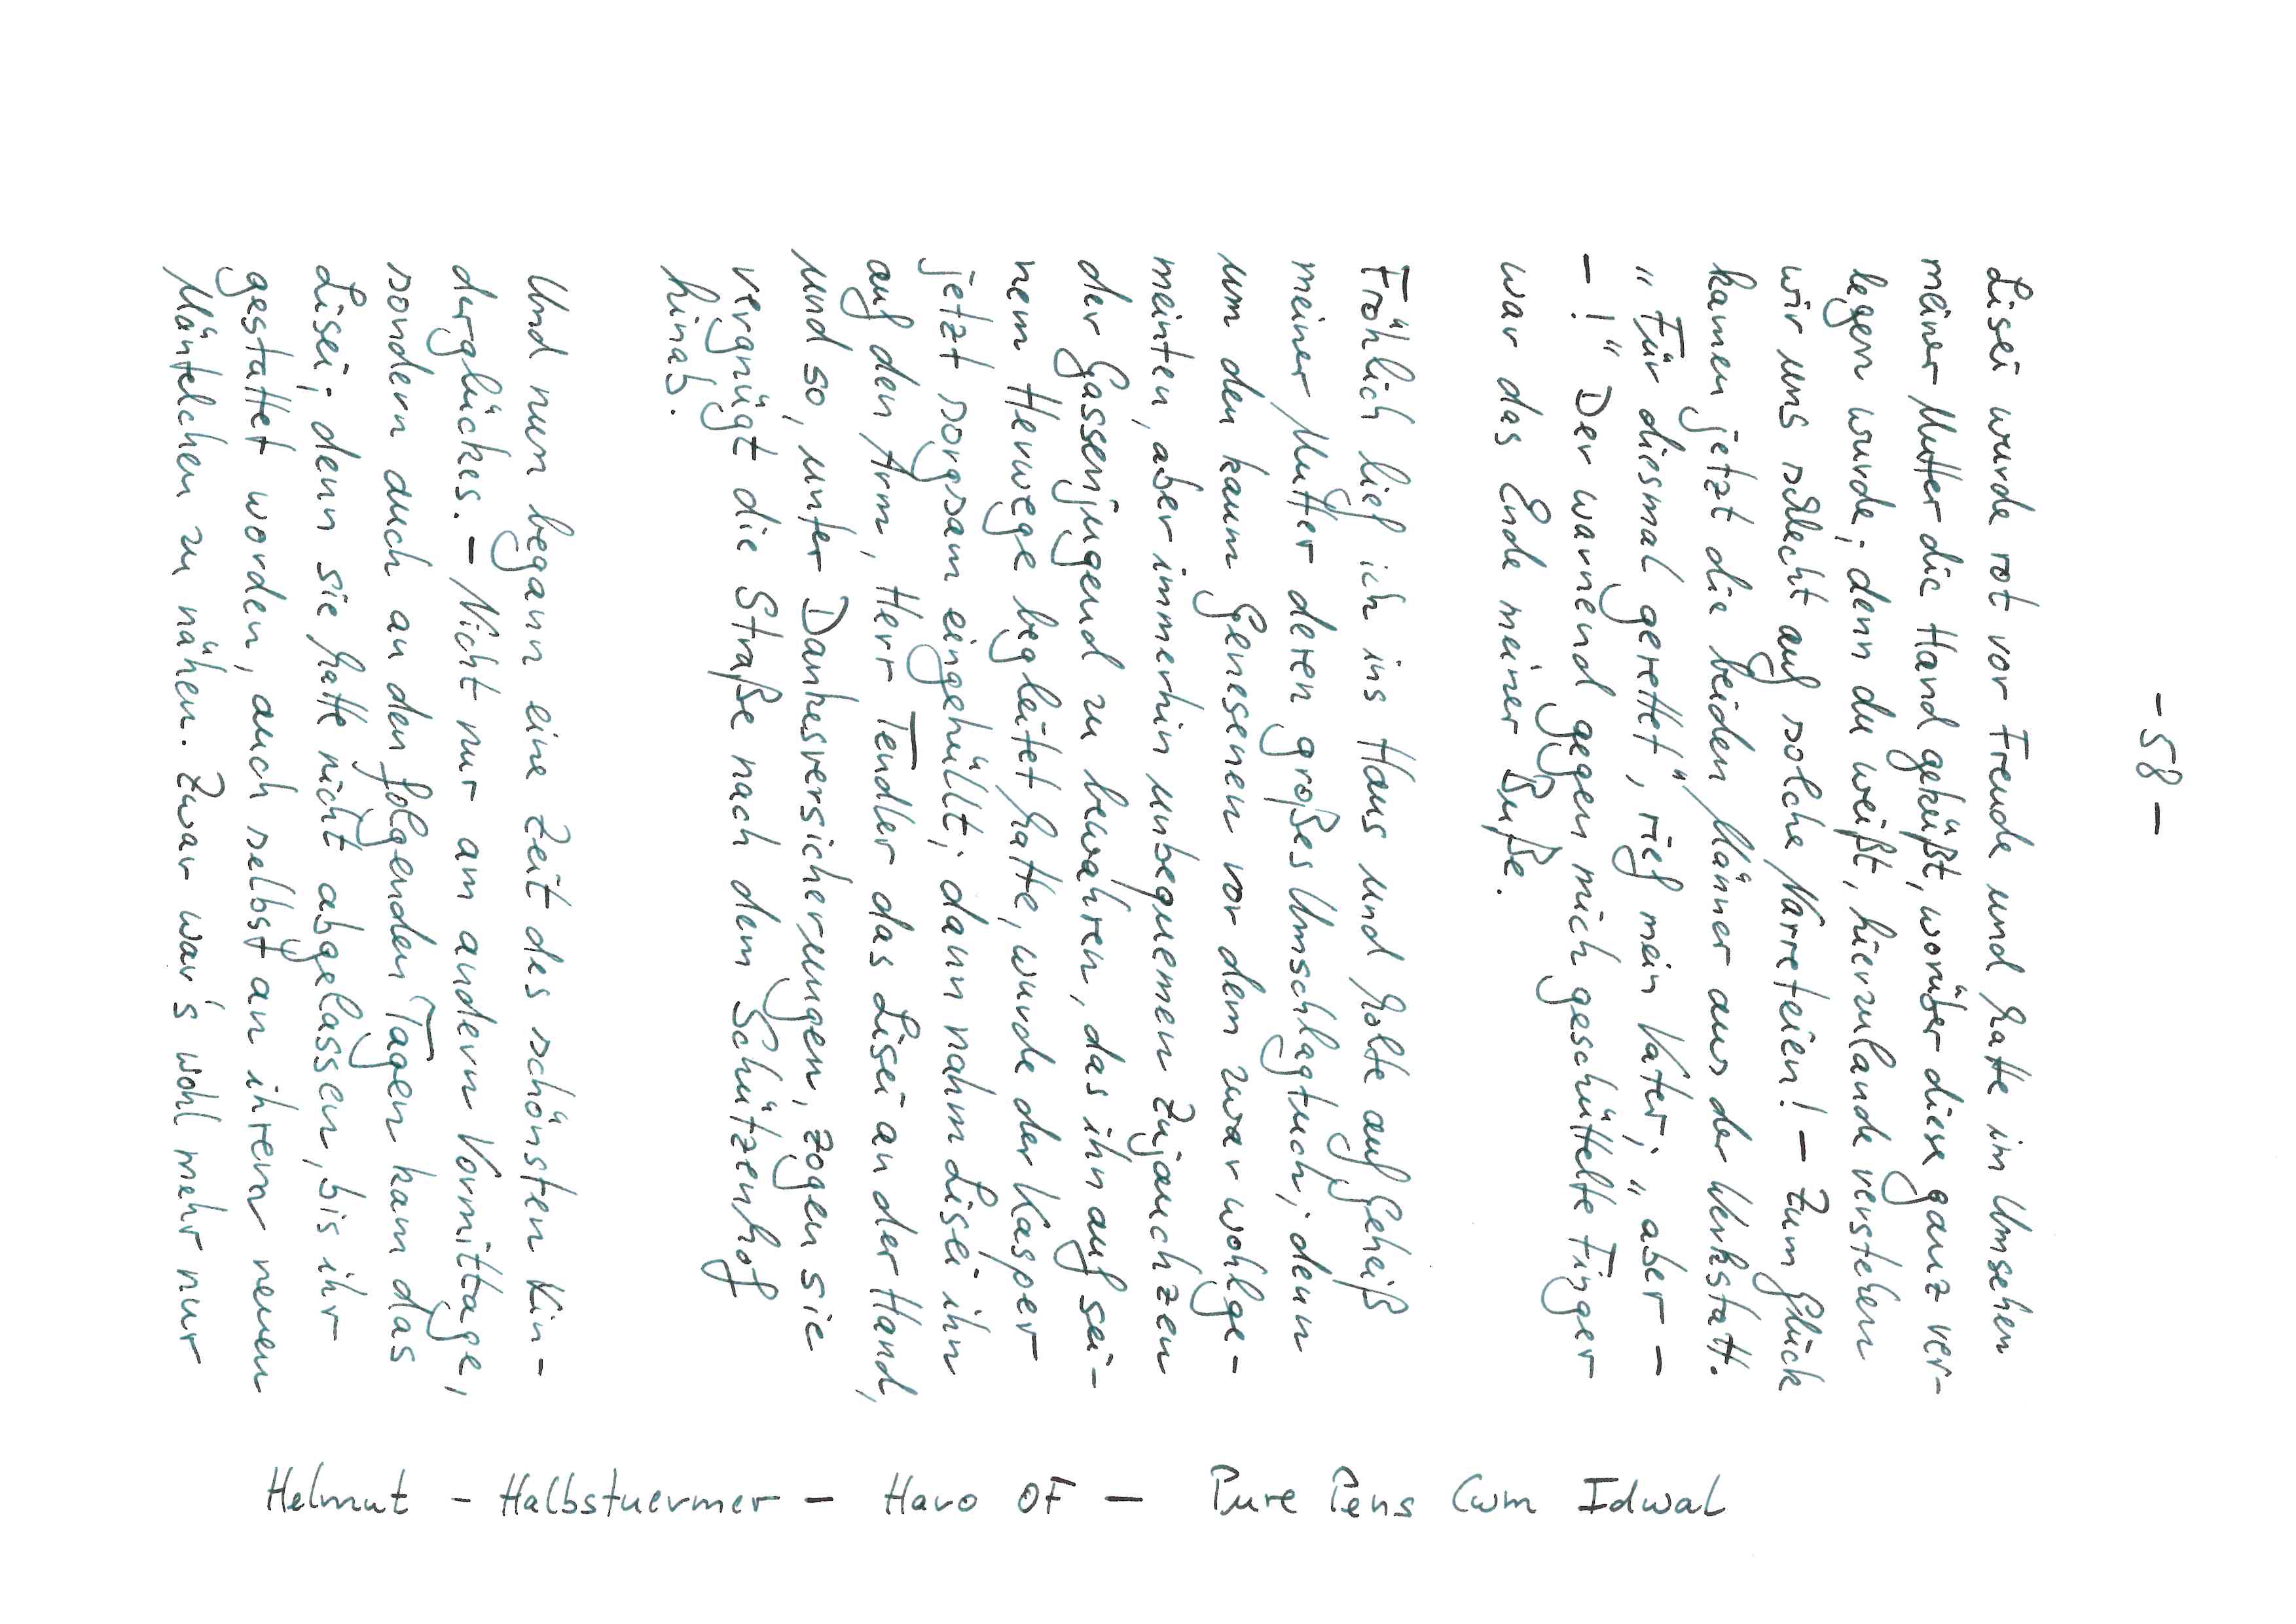 - 58 -
Lisei wurde rot vor Freude und hatte im Umsehen
meiner Mutter die Hand geküßt, worüber diese ganz ver-
legen wurde; denn du weißt, hierzulande verstehen
wir uns schlecht auf solche Narreteien! - Zum Glück
kamen jetzt die beiden Männer aus der Werkstatt.
"Für diesmal gerettet", rief mein Vater; "aber -
- !" Der warnend gegen mich geschüttelte Finger
war das Ende meiner Buße.
Fröhlich lief ich ins Haus und holte auf Geheiß
meiner Mutter deren großes Umschlagtuch; denn
um den kaum Genesenen vor dem zwar wohlge-
meinten, aber immerhin unbequemen Zujauchzen
der Gassenjugend zu bewahren, das ihn auf sei-
nem Herwege begleitet hatte, wurde der Kasper
jetzt sorgsam eingehüllt; dann nahm Lisei ihn
auf den Arm, Herr Tendler das Lisei an der Hand,
und so, unter Dankesversicherungen, zogen sie
vergnügt die Straße nach dem Schützenhof
hinab.
Und nun begann eine Zeit des schönsten Kin-
durglückes. - Nicht nur am andern Vormittage,
sondern auch an den folgenden Tagen kam das
Lisei; denn sie hatte nicht abgelassen, bis ihr
gestattet worden, auch selbst an ihrem neuen
Mäntelchen zu nähen. Zwar war's wohl mehr nur
Helmut - Halbstuermer - Haro OF - Pure Pens Cwm Idwal